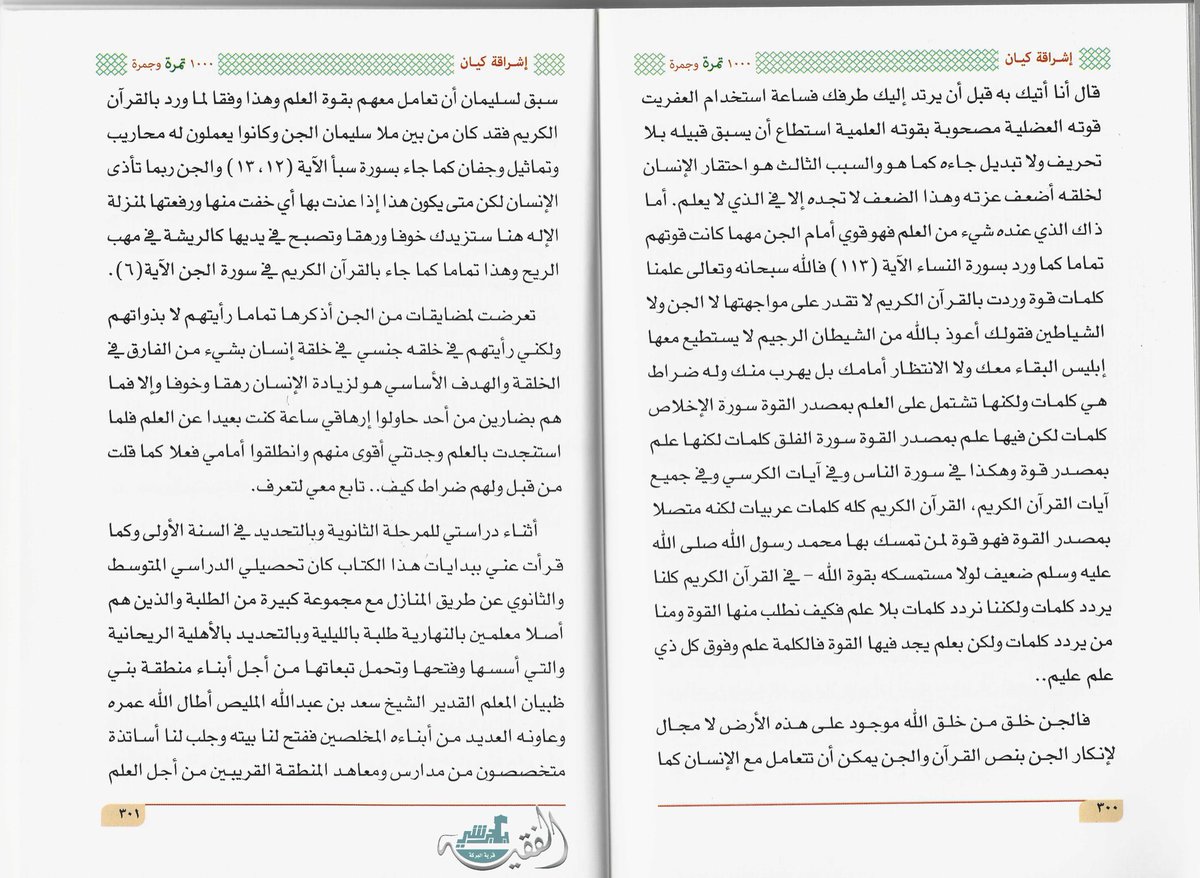 إشراقة كيان
١٠٠٠ تمرة وجمرة
قال أنا أتيك به قبل أن يرتد إليك طرفك فساعة استخدام العفريت
قوته العضلية مصحوبة بقوته العلمية استطاع أن يسبق قبيله بلا
تحريف ولا تبديل جاءه كما هو والسبب الثالث هو احتقار الإنسان
لخلقه أضعف عزته وهذا الضعف لا تجده إلا في الذي لا يعلم. أما
ذاك الذي عنده شيء من العلم فهو قوي أمام الجن مهما كانت قوتهم
تماما كما ورد بسورة النساء الآية (١١٣) فالله سبحانه وتعالى علمنا
كلمات قوة وردت بالقرآن الكريم لا تقدر على مواجهتها لا الجن ولا
الشياطين فقولك أعوذ بالله من الشيطان الرجيم لا يستطيع معها
إبليس البقاء معك ولا الانتظار أمامك بل يهرب منك وله ضراط
هي كلمات ولكنها تشتمل على العلم بمصدر القوة سورة الإخلاص
كلمات لكن فيها علم بمصدر القوة سورة الفلق كلمات لكنها علم
بمصدر قوة وهكذا في سورة الناس وفي آيات الكرسي وفي جميع
آيات القرآن الكريم، القرآن الكريم كله كلمات عربيات لكنه متصلا
بمصدر القوة فهو قوة لمن تمسك بها محمد رسول الله صلى الله
عليه وسلم ضعيف لولا مستمسكه بقوة الله – في القرآن الكريم كلنا
يردد كلمات ولكننا نردد كلمات بلا علم فكيف نطلب منها القوة ومنا
من يردد كلمات ولكن بعلم يجد فيها القوة فالكلمة علم وفوق كل ذي
علم عليم..
فالجن خلق من خلق الله موجود على هذه الأرض لا مجال
لإنكار الجن بنص القرآن والجن يمكن أن تتعامل مع الإنسان كما
٣٠٠
إشراقة كيان
١٠٠٠ تمرة وجمرة
سبق لسليمان أن تعامل معهم بقوة العلم وهذا وفقا لما ورد بالقرآن
الكريم فقد كان من بين ملا سليمان الجن وكانوا يعملون له محاريب
وتماثيل وجفان كما جاء بسورة سبأ الآية (١٣،١٢) والجن ربما تأذى
الإنسان لكن متى يكون هذا إذا عذت بها أي خفت منها ورفعتها لمنزلة
الإله هنا ستزيدك خوفا ورهقا وتصبح في يديها كالريشة في مهب
الريح وهذا تماما كما جاء بالقرآن الكريم في سورة الجن الآية(٦).
تعرضت لمضايقات من الجن أذكرها تماما رأيتهم لا بذواتهم
ولكني رأيتهم في خلقه جنسي في خلقة إنسان بشيء من الفارق في
الخلقة والهدف الأساسي هو لزيادة الإنسان رهقا وخوفا وإلا فما
هم بضارين من أحد حاولوا إرهاقي ساعة كنت بعيدا عن العلم فلما
استنجدت بالعلم وجدتني أقوى منهم وانطلقوا أمامي فعلا كما قلت
من قبل ولهم ضراط كيف.. تابع معي لتعرف.
أثناء دراستي للمرحلة الثانوية وبالتحديد في السنة الأولى وكما
قرأت عني ببدايات هذا الكتاب كان تحصيلي الدراسي المتوسط
والثانوي عن طريق المنازل مع مجموعة كبيرة من الطلبة والذين هم
أصلا معلمين بالنهارية طلبة بالليلية وبالتحديد بالأهلية الريحانية
والتي أسسها وفتحها وتحمل تبعاتها من أجل أبناء منطقة بني
ظبيان المعلم القدير الشيخ سعد بن عبدالله المليص أطال الله عمره
وعاونه العديد من أبناءه المخلصين ففتح لنا بيته وجلب لنا أساتذة
متخصصون من مدارس ومعاهد المنطقة القريبين من أجل العلم
٣٠١
الفقيه
قرية البركة